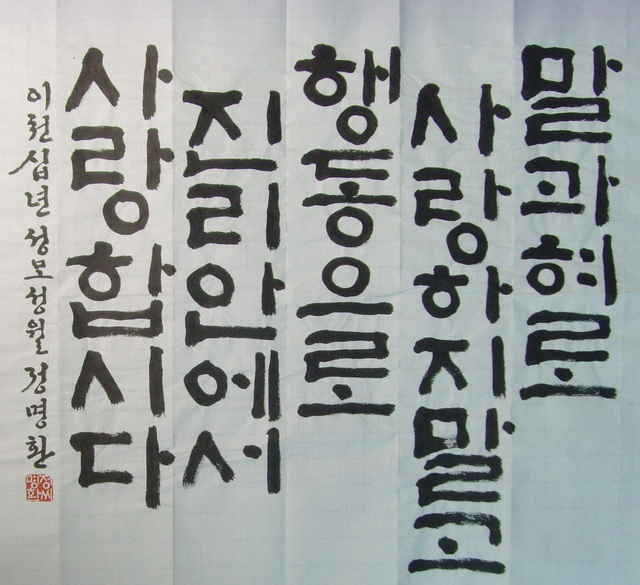 말과혀로
사랑하지말고
행동으로
진리안에서
사랑합시다
이천십년성모성월정명환